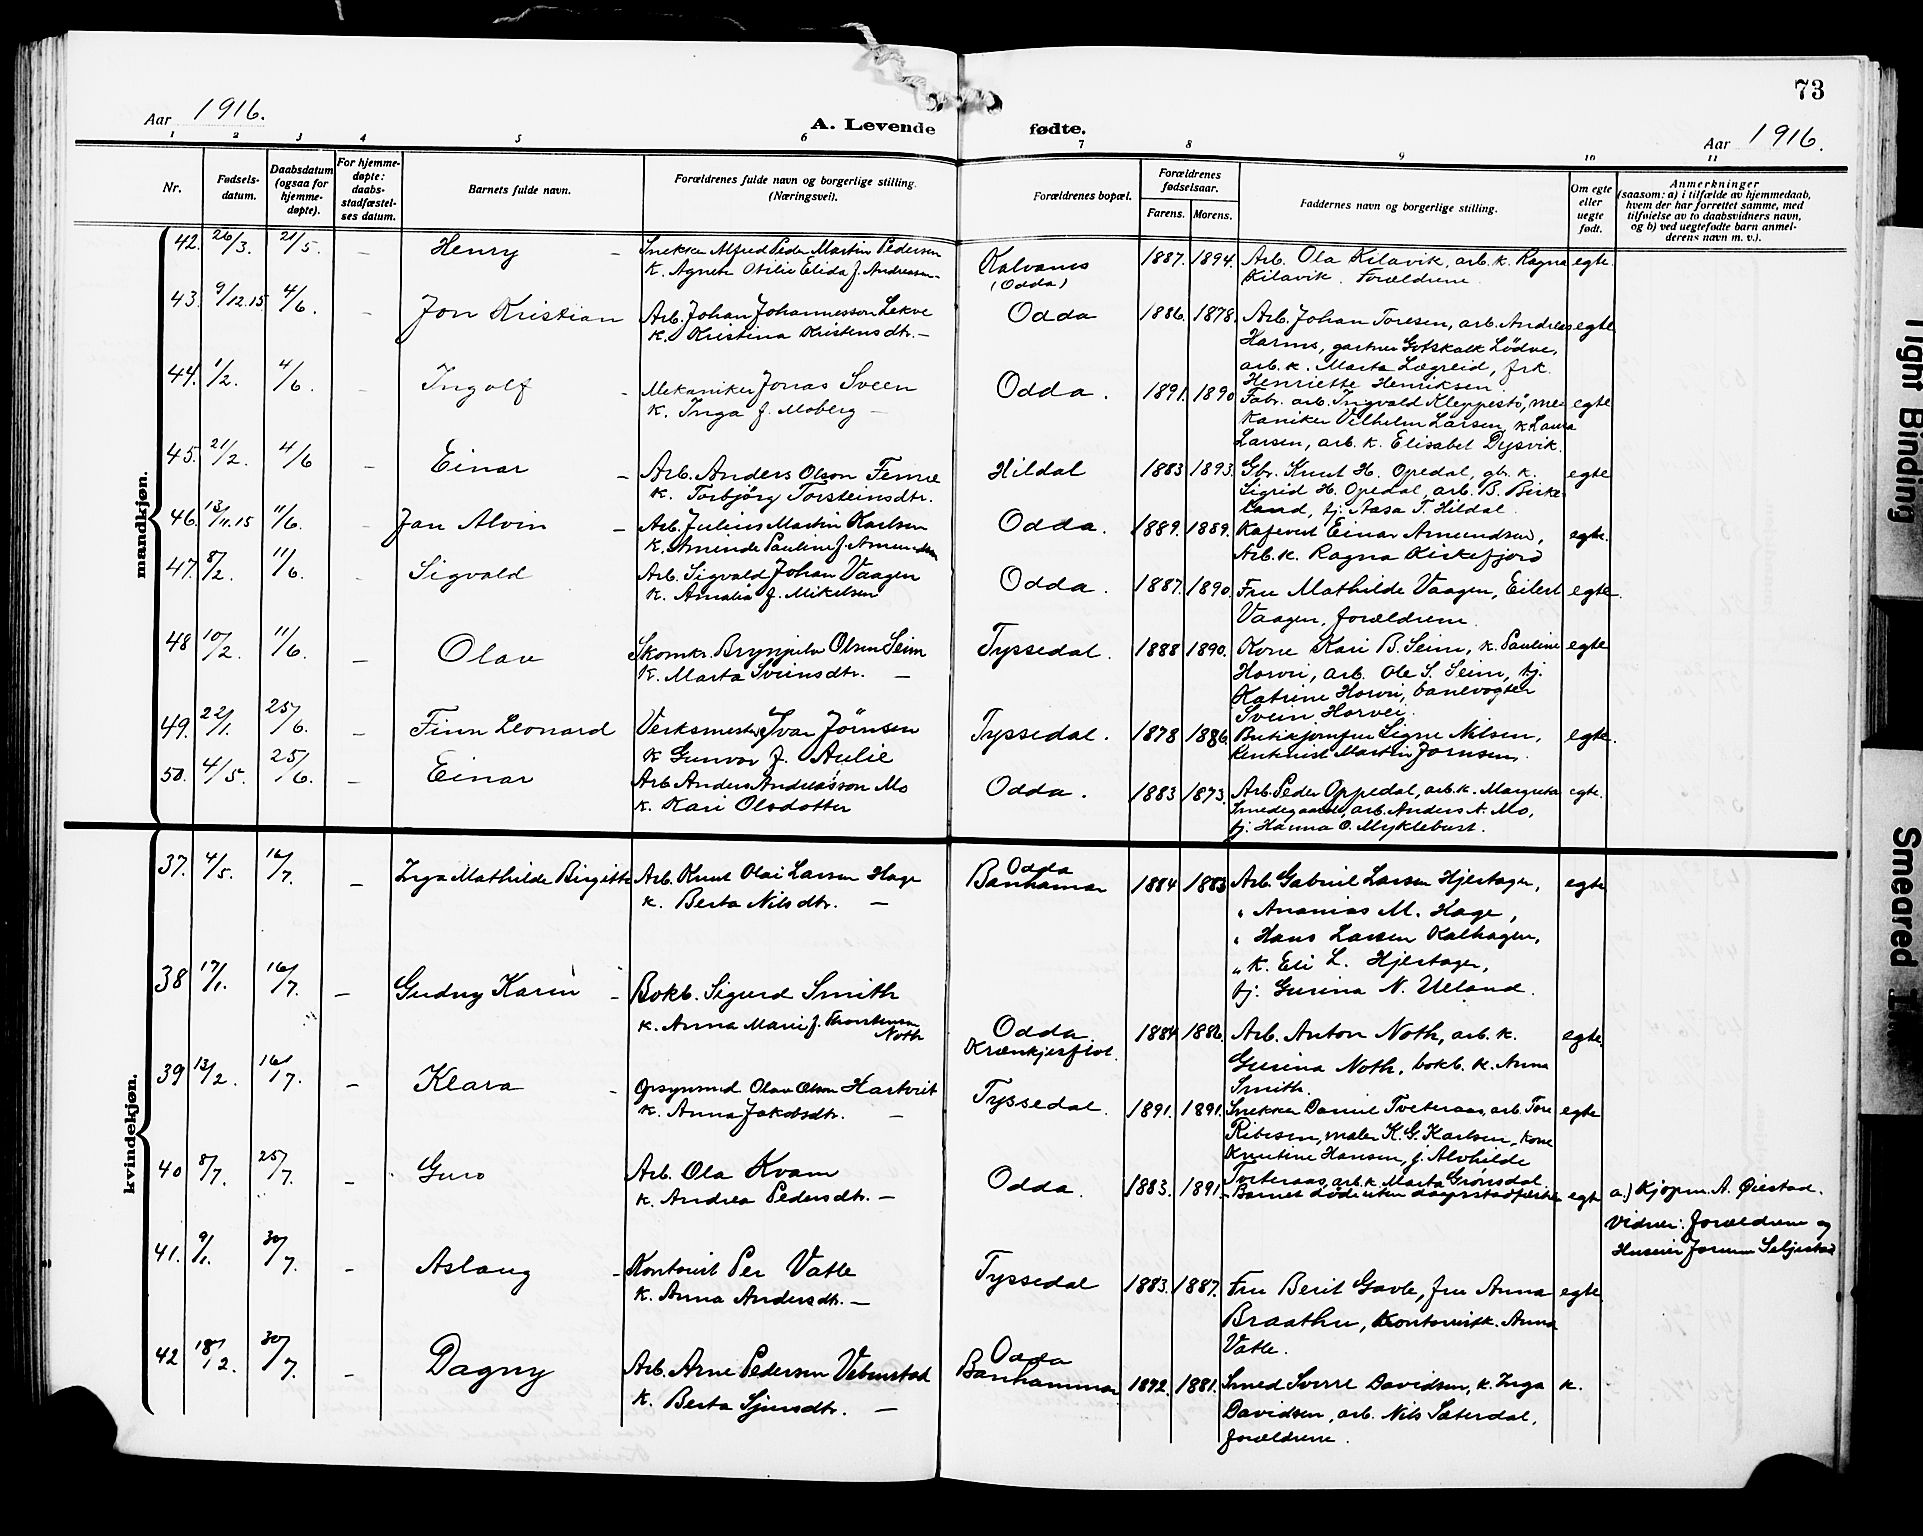 73
Aar 1916.
A. Levende fødte.
Aar 1916.
1 2 3 4 5 6 7 8 9 10 11
Nr.
Fødsels-
datum.
Daabsdatum
(ogsaa for
hjemme-
døpte).
For hjemme-
døpte:
daabs-
stadfæstel-
ses datum.
Barnets fulde navn.
Forældrenes fulde navn og borgerlige stilling.
(Næringsvei).
Forældrenes bopæl.
Forældrenes
fødselsaar.
Farens. Morens.
Faddernes navn og borgerlige stilling.
Om egte
eller
uegte
født.
Anmerkninger
(saasom: a) i tilfælde av hjemmedaab,
hvem der har forrettet samme, med
tilføielse av to daabsvidners navn,
og b) ved uegtefødte barn anmel-
derens navn m. v.).
mandkjøn.
42. 26/3. 21/5. – Henry – Snekker Alfred Peder Martin Pedersen
k. Agnete Otilie Elida f. Andreasen
Kalvanes
(Odda)
1887. 1894. Arb. Ola Kilavik, arb. k. Ragna
Kilavik. Forældrene.
egte.
43. 9/12.15 4/6. – Jon Kristian Arb. Johan Johannesson Lekve
k. Kristina Kristensdtr. –
Odda 1886. 1878. Arb. Johan Toresen, arb. Andreas
Harms, gartner Gotskalk Lødve,
arb. k. Marta Lægreid, frk.
Henriette Henriksen.
egte
44. 1/2. 4/6. – Ingolf – Mekaniker Jonas Sveen
k. Inga f. Moberg –
Odda. 1891. 1890 Fabr. arb. Ingvald Kleppestø, me-
kaniker Vilhelm Larsen, k. Laura
Larsen, arb. k. Elisabet Dysvik.
egte
45. 21/2. 4/6 – Einar – Arb. Anders Olson Ferme
k. Torbjörg Torsteinsdtr.
Hildal 1883 1893. Gbr. Knut H. Opedal, gb. k.
Sigrid H. Opedal, arb. B. Birke-
land, tj. Aasa T. Hildal.
egte
46. 13/11.15 11/6. – Jan Alvin – Arb. Julius Martin Karlsen
k. Aminde Pauline f. Amundsen
Odda. 1889. 1889. Kafevert Einar Amundsen,
Arb. k. Ragna Kirkefjord
egte.
47. 8/2. 11/6. – Sigvald Arb. Sigvald Johan Vaagen
k. Amalia f. Mikelsen
Odda. 1887. 1890. Fru Mathilde Vaagen, Eilert
Vaagen, forældrene.
egte.
48 10/2. 11/6. – Olav Skomkr. Brynjulv Olsen Seim
k. Marta Sveinsdtr. –
Tyssedal. 1888 1890. Kone Kari B. Seim, k. Pauline
Horvei, arb. Ole S. Seim, tj.
Katrine Horvei, banevogter
Svein Horvei.
egte
49. 22/1. 25/6. – Finn Leonard Verksmester Ivar Jörnsen
k Gunvor f. Aulie
Tyssedal. 1878 1886. Butikjomfru Signe Nilsen,
Kontorist Martin Jørnsen.
egte.
50. 4/5. 25/6. – Einar Arb Anders Andreasson Mo
k. Kari Olsdotter
Odda. 1883 1873. Arb. Peder Oppedal, arb. k. Margreta
Smedegaard, arb. Anders A. Mo,
tj. Hanna O. Myklebust.
egte.
kvindekjøn.
37. 4/5. 16/7. – Inga Mathilde Birgitte Arb. Knut Olai Larsen Hage
k. Berta Nilsdtr. –
Odda
Banhamar
1884 1883 Arb. Gabriel Larsen Hjertager,
" Ananias M. Hage,
" Hans Larsen Kalhagen,
" k. Eli L. Hjertager,
tj. Gurina N. Ueland.
egte
38 17/1. 16/7. – Gudny Karin – Bokb. Sigurd Smith
k. Anna Marie f. Thorstensen
Noth
Odda
1884 1886. Arb. Anton Noth, arb. k.
Gurina Noth, bokb. k. Anna
Smith.
egte.
39 13/2. 16/7. – Klara – Opsynsmd Olav Olsen Hartveit
k. Anna Jakobsdtr. –
Tyssedal. 1891. 1891. Snekker Daniel Tveteraas, arb. Tore
Ribesen, maler K. G. Karlsen, kone
Knutine Hansen, f. Alvhilde
Tveteraas, arb. k. Marta Grønsdal.
egte
40 8/7. 25/7. – Guro Arb. Ola Kvam
k. Andrea Pedersdtr. –
Odda. 1883. 1891. – Barnet døde uten daapsstadfæstelse
egte a.) Kjøpm. A. Øiestad.
Vidner: forældrene og
Huseier Jorunn Seljestad
41. 9/1. 30/7. – Aslaug – Kontorist Per Vatle
k. Anna Andersdtr. –
Tyssedal 1883. 1887. Fru Berit Gavle, fru Anna
Braathu, kontorist k. Anna
Vatle.
egte
42 18/12. 30/7. – Dagny Arb. Arne Pedersen Vebnestad
k. Berta Sjursdtr. –
Odda
Banhammar
1872. 1881. Smed Sverre Davidsen, k. Inga
Davidsen, arb. Nils Sæterdal,
forældrene.
k.
Tight Binding
Smeared